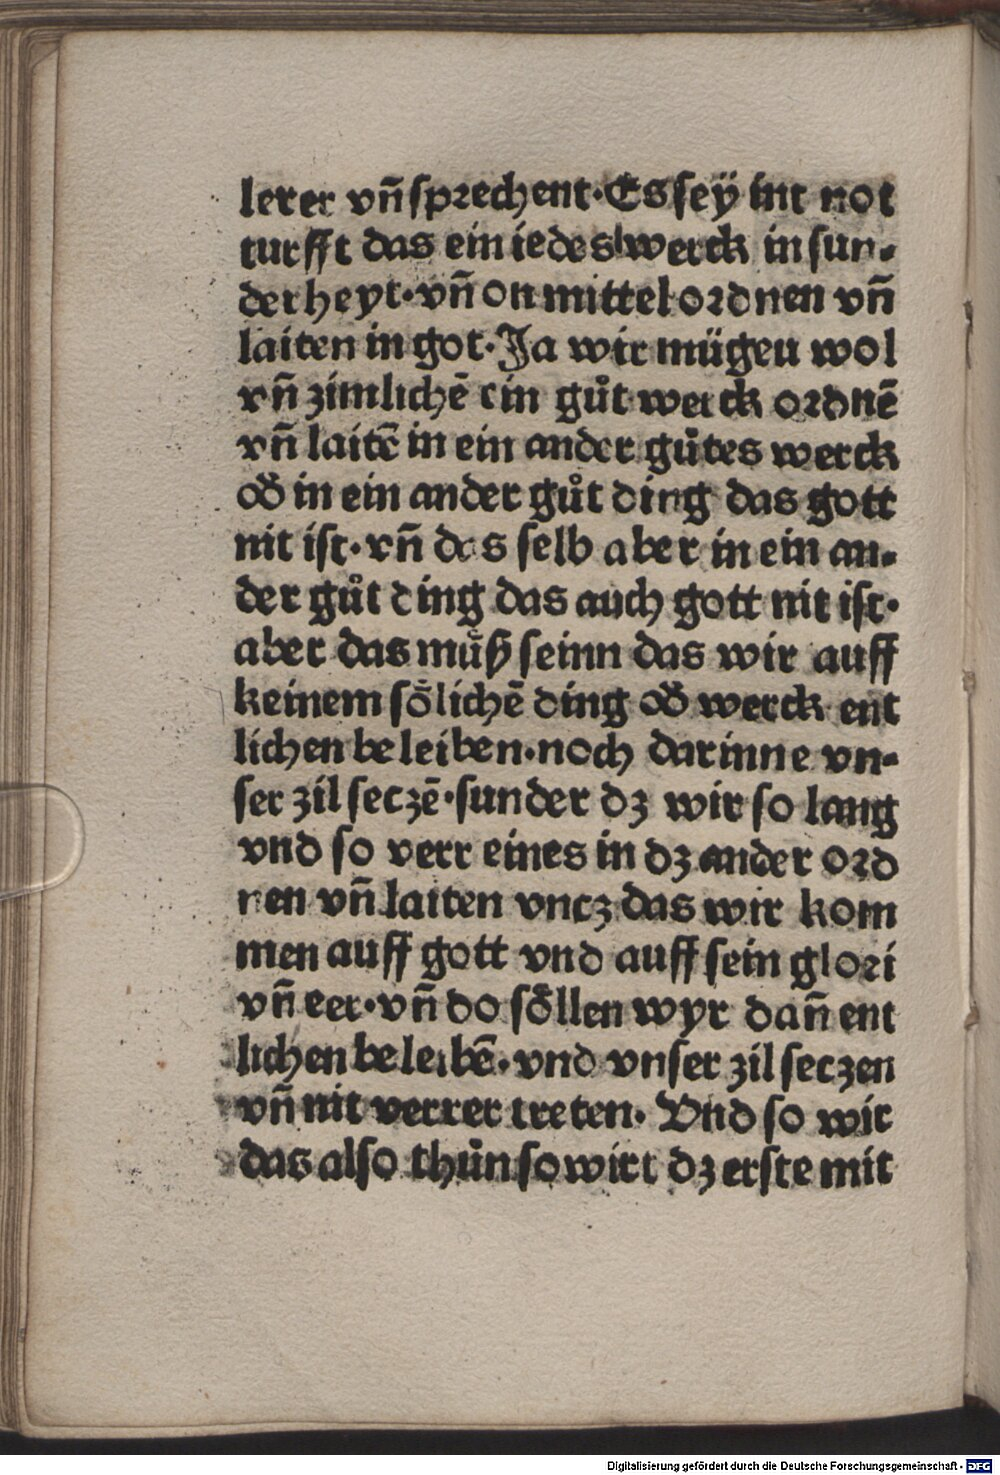 lerer vn̄ sprechent·Es sey int not
turfft das ein iedes werck in sun-
derheyt·vn̄ on mittel ordnen vn̄
laiten in got·Ja wir mügen wol
vn̄ zimlichē ein gůt werck ordnē
vn̄ laitē in ein ander gůtes werck
od̄ in ein ander gůt ding das gott
nit ist·vn̄ das selb aber in ein an-
der gůt ding das auch gott nit ist·
aber das můß seinn das wir auff
keinem sőlichē ding od̄ werck ent
lichen beleiben·noch darinne vn-
ser zil seczē·sunder dz wir so lang
vnd so verr eines in dz ander ord
nen vn̄ laiten vncz das wir kom
men auff gott vnd auff sein glori
vn̄ eer·vn̄ do söllen wyr dan̄ ent
lichen beleibē·vnd vnser zil seczen
vn̄ nit verrer treten· Vnd so wir
das also thůn so wirt dz erste mit
Digitalisierung gefördert durch die Deutsche Forschungsgemeinschaft - DFG